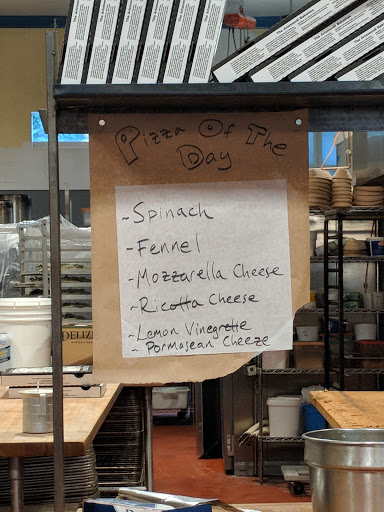 Pizza Of The
Day
~Spinach
~Fennel
~Mozzarella Cheese
~Ricotta Cheese
~Lemon Vinegrette
~Parmasean Cheeze
DELIZI